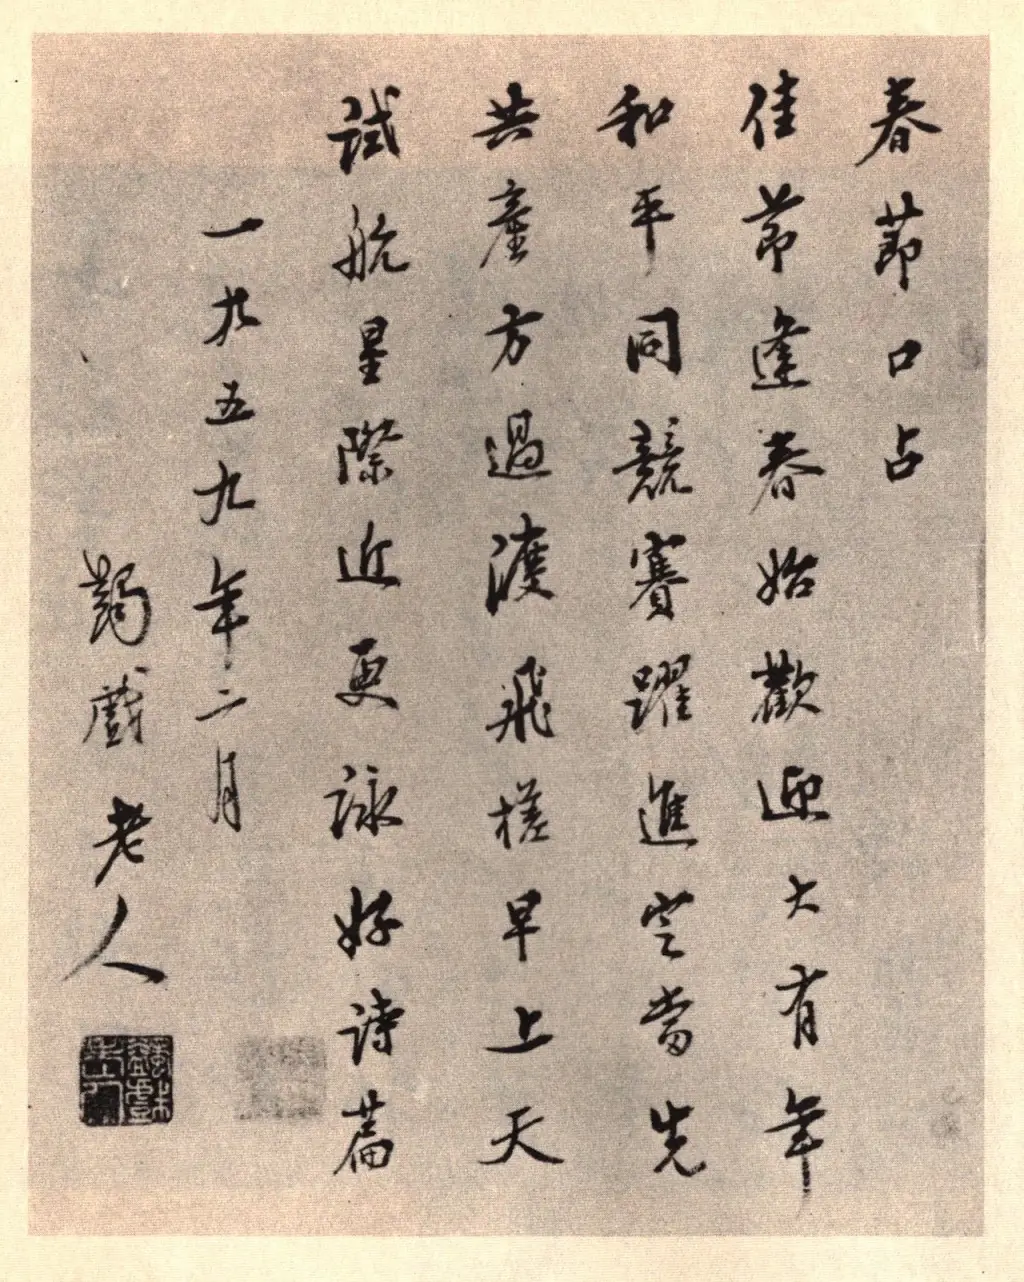 春節口占
佳節逢春始歡迎大有年
和平同競賽躍進定當先
共產方過渡飛槎早上天
試航星際近更詠好詩篇
一九五九年二月
蠲戲老人